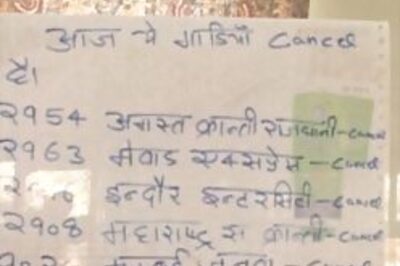 आज ये गाडियाँ Cancel
है।
2954 अगस्त क्रान्ती राजधानी-cancel
2963 मेवाड एक्सप्रेस-cancel
इन्दौर इन्टरसिटी-cancel
2908 महाराष्ट्र स क्रान्ती-cancel